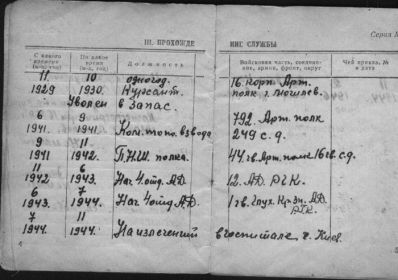 Серия
III. ПРОХОЖДЕНИЕ СЛУЖБЫ
С какого времени (м-ц, год) По какое время (м-ц, год) Должность Войсковая часть, соединение, армия, фронт, округ Чей приказ, № и дата
11 10 одногод. 16 корп. Арт.
1929 1930. Курсант. полк г. Могилев.
Уволен в запас.
6 9 792. Арт. полк
1941. 1941. Ком. топо. взвода 249 с.д.
9 11
1941 1942. П.Н.Ш. полка. 44 гв. Арт. полк 16 гв. с.д.
11 6
1942 1943. Нач. 4 отд. А.Д. 12. АД. РГК.
6 7
1943. 1944. Нач. 4 отд. А.Д. 1 гв. Глух. Кр. Зн. АД.
РГК.
7 11
1944. 1944. На излечении в госпитале г. Киев.